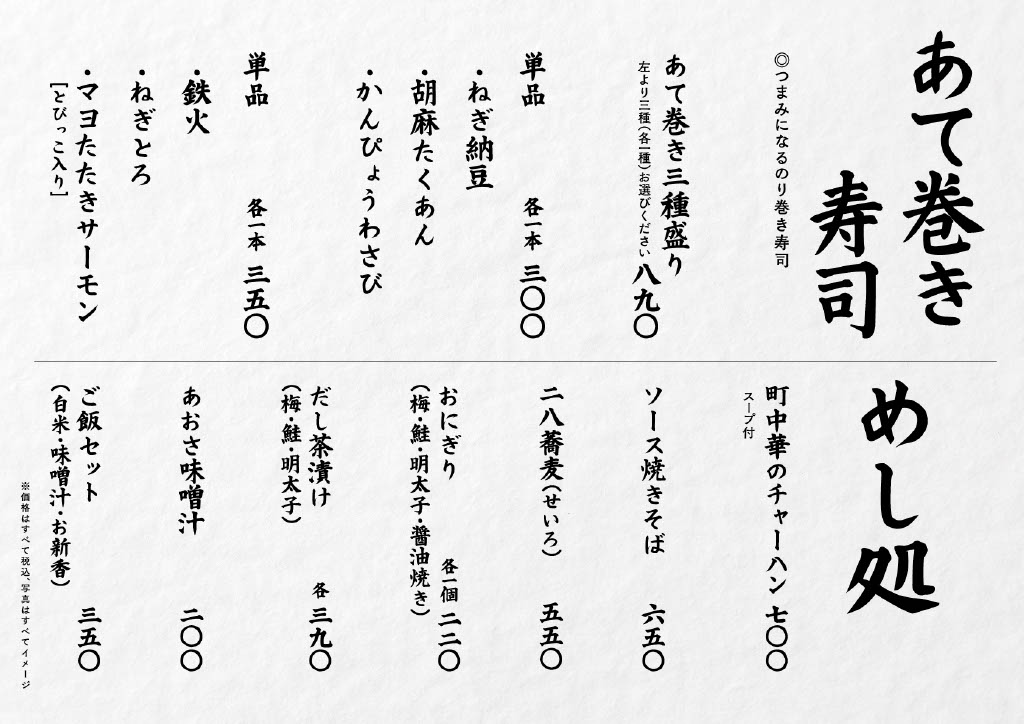 あて巻き
寿司
◎つまみになるのり巻き寿司
あて巻き三種盛り
左より三種(各一種)お選びください 八九〇
単品 各一本 三〇〇
・ねぎ納豆
・胡麻たくあん
・かんぴょうわさび
単品 各一本 三五〇
・鉄火
・ねぎとろ
・マヨたたきサーモン
[とびっこ入り]
めし処
町中華のチャーハン 七〇〇
スープ付
ソース焼きそば 六五〇
二八蕎麦(せいろ) 五五〇
おにぎり 各一個 二二〇
(梅・鮭・明太子・醤油焼き)
だし茶漬け 各 三九〇
(梅・鮭・明太子)
あおさ味噌汁 二〇〇
ご飯セット 三五〇
(白米・味噌汁・お新香)
※価格はすべて税込、写真はすべてイメージ